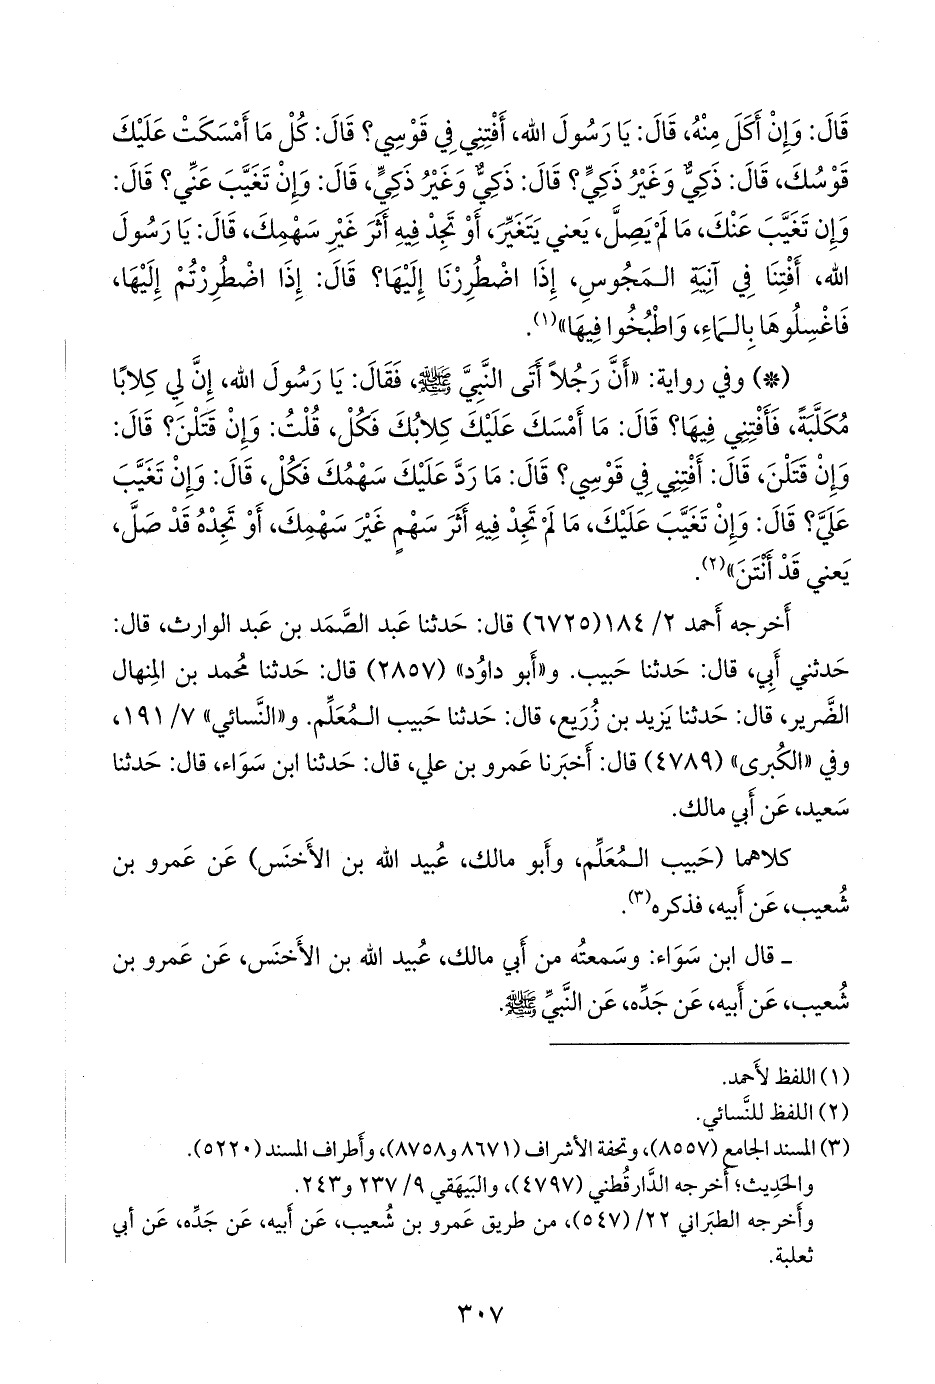 قَالَ: وَإِنْ أَكَلَ مِنْهُ، قَالَ: يَا رَسُولَ الله، أَفْتِنِي فِي قَوْسِي؟ قَالَ: كُلْ مَا أَمْسَكَتْ عَلَيْكَ
قَوْسُكَ، قَالَ: ذَكِيٌّ وَغَيْرُ ذَكِيٍّ؟ قَالَ: ذَكِيٌّ وَغَيْرُ ذَكِيٍّ، قَالَ: وَإِنْ تَغَيَّبَ عَنِّي؟ قَالَ:
وَإِن تَغَيَّبَ عَنْكَ، مَا لَمْ يَصِلَّ، يَعني يَتَغَيَّرَ، أَوْ تَجِدْ فِيهِ أَثَرَ غَيْرِ سَهْمِكَ، قَالَ: يَا رَسُولَ
الله، أَفْتِنَا فِي آنِيَةِ الـمَجُوسِ، إِذَا اضْطُرِرْنَا إِلَيْهَا؟ قَالَ: إِذَا اضْطُرِرْتُمْ إِلَيْهَا،
فَاغْسِلُوهَا بِالـمَاءِ، وَاطْبُخُوا فِيهَا»(١).
(*) وفي رواية: «أَنَّ رَجُلاً أَتَى النَّبِيَّ ﷺ، فَقَالَ: يَا رَسُولَ الله، إِنَّ لِي كِلابًا
مُكَلَّبَةً، فَأَفْتِنِي فِيهَا؟ قَالَ: مَا أَمْسَكَ عَلَيْكَ كِلابُكَ فَكُلْ، قُلْتُ: وَإِنْ قَتَلْنَ؟ قَالَ:
وَإِنْ قَتَلْنَ، قَالَ: أَفْتِنِي فِي قَوْسِي؟ قَالَ: مَا رَدَّ عَلَيْكَ سَهْمُكَ فَكُلْ، قَالَ: وَإِنْ تَغَيَّبَ
عَلَيَّ؟ قَالَ: وَإِنْ تَغَيَّبَ عَلَيْكَ، مَا لَمْ تَجِدْ فِيهِ أَثَرَ سَهْمٍ غَيْرَ سَهْمِكَ، أَوْ تَجِدْهُ قَدْ صَلَّ،
يَعني قَدْ أَنْتَنَ»(٢).
أَخرجه أَحمد ٢/ ١٨٤(٦٧٢٥) قال: حَدثنا عَبد الصَّمَد بن عَبد الوارث، قال:
حَدثني أَبِي، قال: حَدثنا حَبيب. و«أَبو داوُد» (٢٨٥٧) قال: حَدثنا مُحمد بن المِنهال
الضَّرير، قال: حَدثنا يَزيد بن زُرَيع، قال: حَدثنا حَبيب الـمُعَلِّم. و«النَّسائي» ٧/ ١٩١،
وفي «الكُبرى» (٤٧٨٩) قال: أَخبَرنا عَمرو بن علي، قال: حَدثنا ابن سَوَاء، قال: حَدثنا
سَعيد، عَن أَبي مالك.
كلاهما (حَبيب الـمُعَلِّم، وأَبو مالك، عُبيد الله بن الأَخنَس) عَن عَمرو بن
شُعيب، عَن أَبيه، فذكره(٣).
ـ قال ابن سَوَاء: وسَمعتُه من أَبي مالك، عُبيد الله بن الأَخنَس، عَن عَمرو بن
شُعيب، عَن أَبيه، عَن جَدِّه، عَن النَّبيِّ ﷺ.
(١) اللفظ لأَحمد.
(٢) اللفظ للنَّسائي.
(٣) المسند الجامع (٨٥٥٧)، وتحفة الأشراف (٨٦٧١ و٨٧٥٨)، وأَطراف المسند (٥٢٢٠).
والحَدِيث؛ أَخرجه الدَّارقُطني (٤٧٩٧)، والبَيهَقي ٩/ ٢٣٧ و٢٤٣.
وأَخرجه الطبَراني ٢٢/ (٥٤٧)، من طريق عَمرو بن شُعيب، عَن أَبيه، عَن جَدِّه، عَن أبي
ثعلبة.
٣٠٧